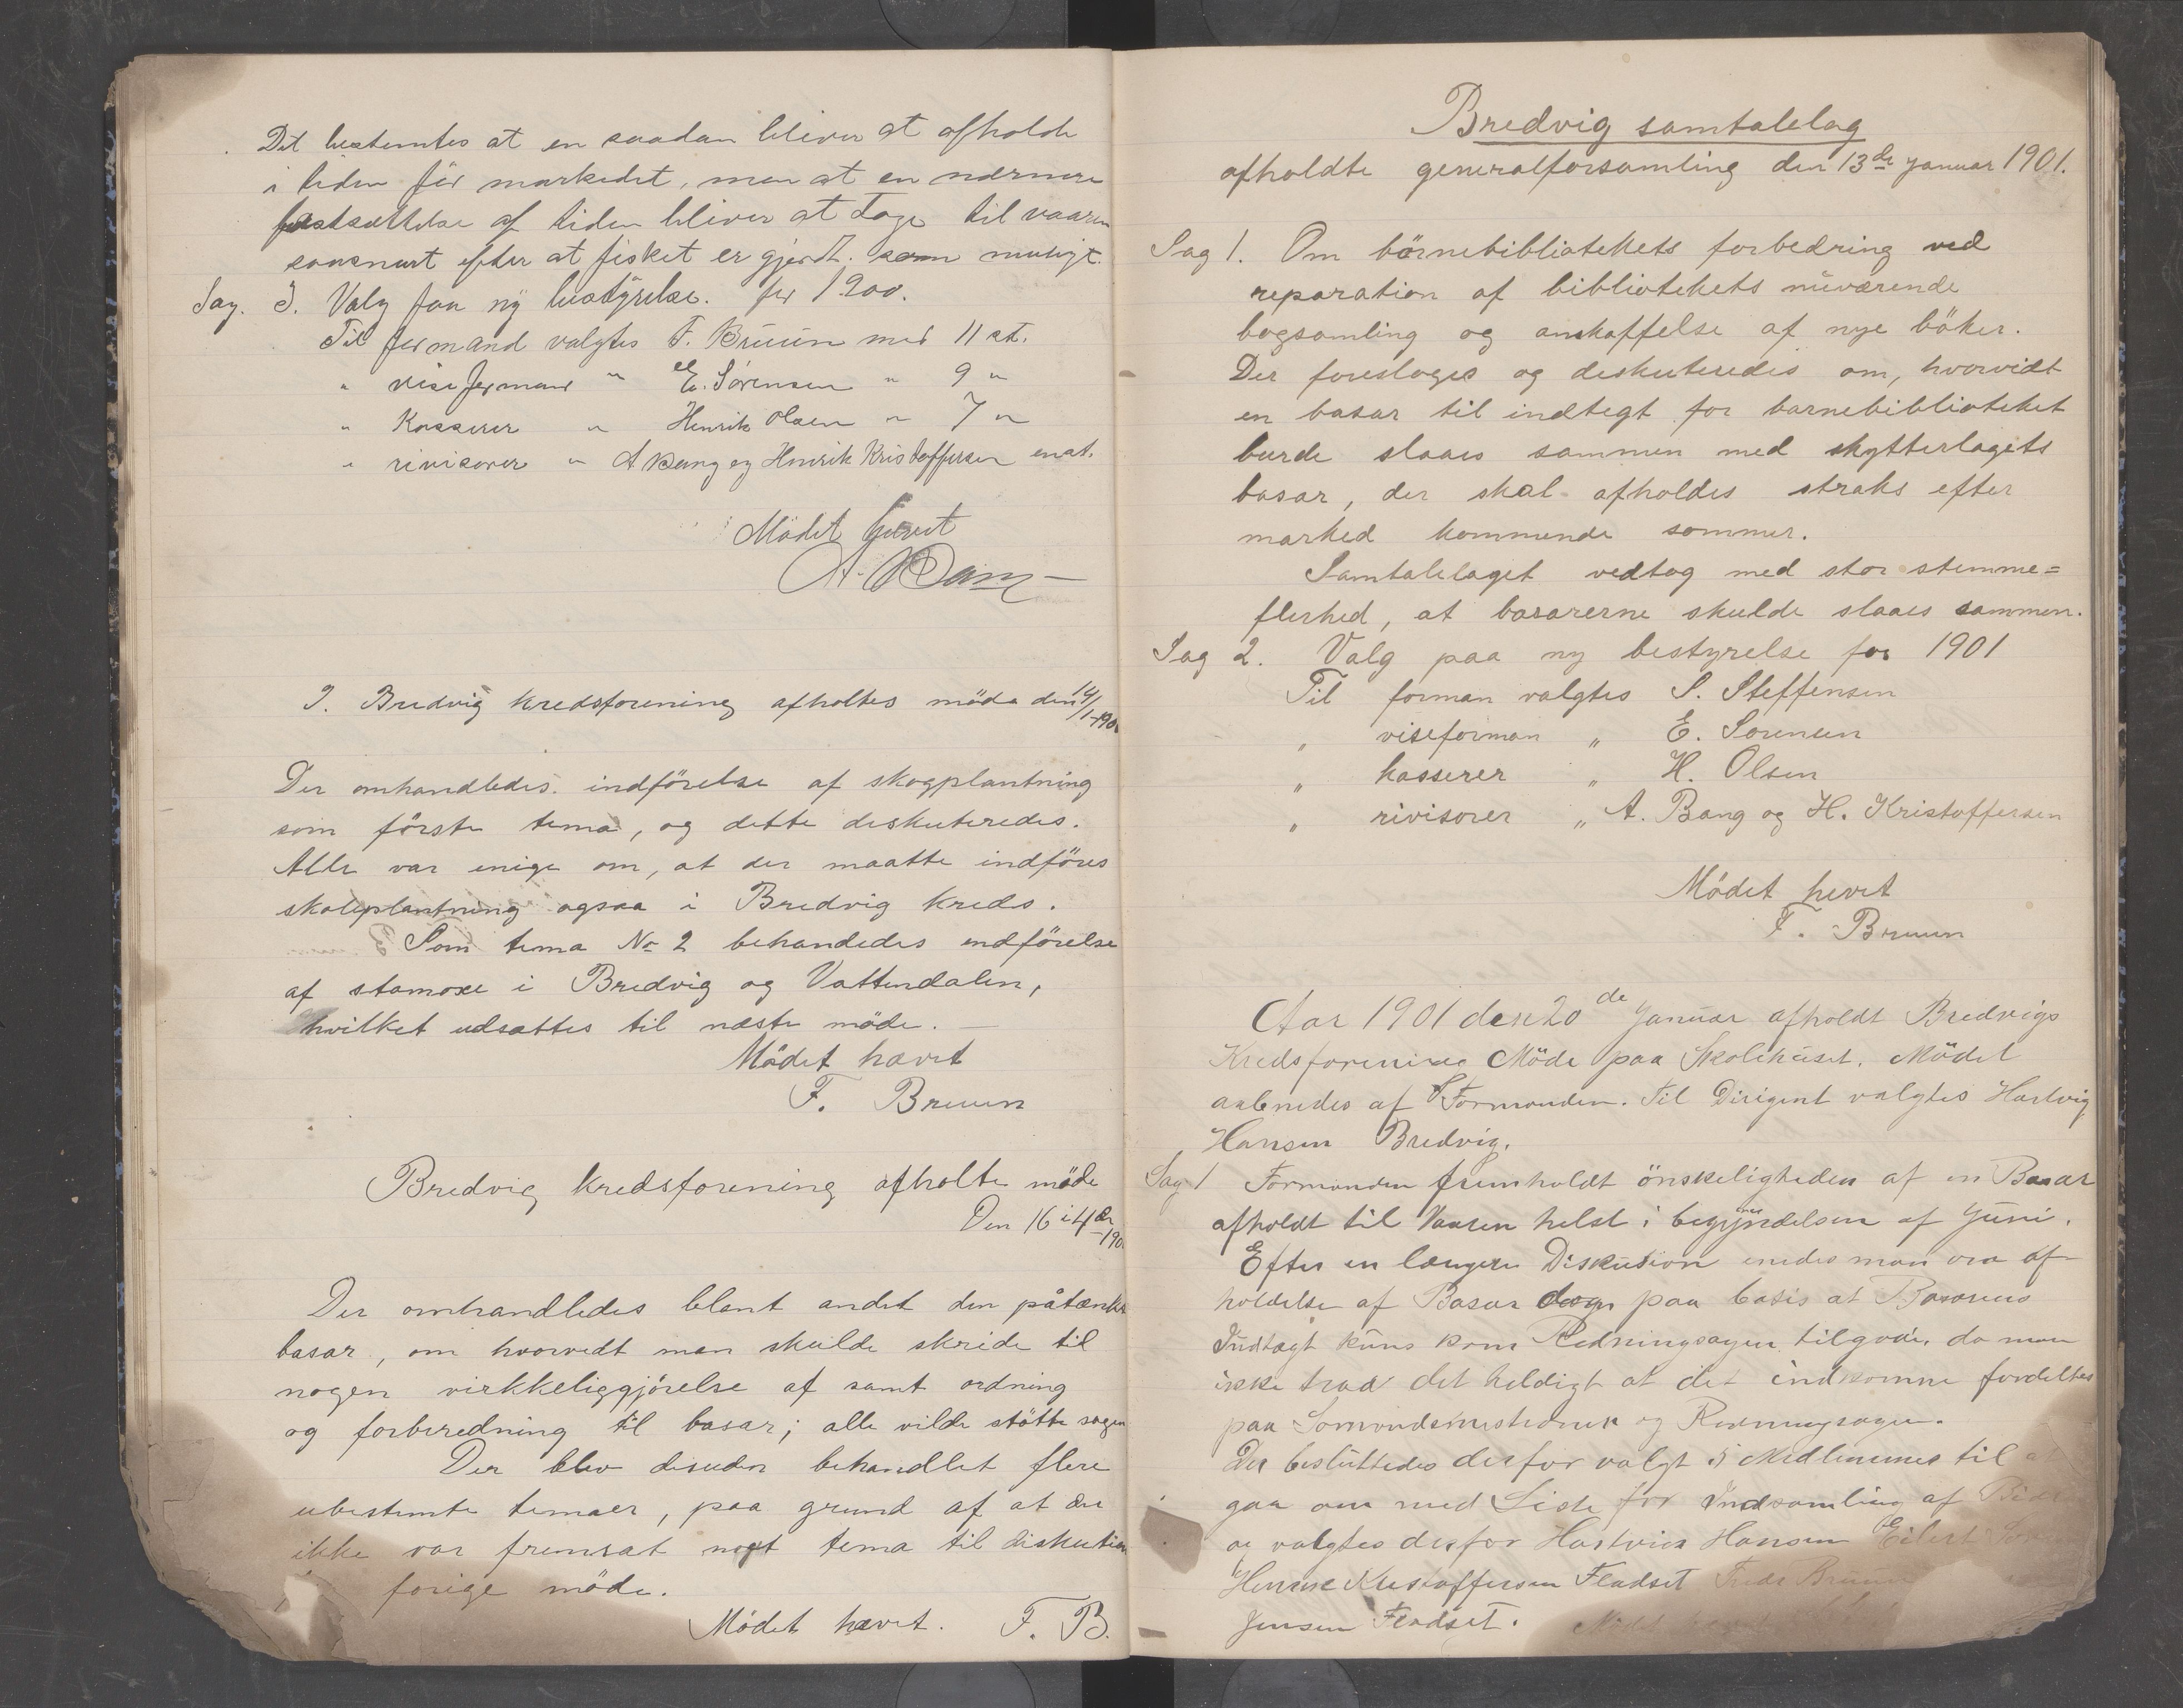 Det bestemtes at en saadan bliver at afholde
i tiden för markedet, men at en nærmere
fastsættelse af tiden bliver at tage til vaaren
saasnart efter at fisket er gjordt. som muligt.
Sag. 3. Valg paa ny bestyrelse. for 1900.
Til formand valgtes F. Bruun med 11 st.
" viseformand " E. Sörensen " 9 "
" Kasserer " Henrik Olsen " 7 "
" rivisorer " A Bang og Henrik Kristoffersen enst.
Mödet hævet
A. Bang
I. Bredvig kredsforening afholtes möde den 14/1-190
Der omhandledes indförelse af skogplantning
som förste tema, og dette deskuteredes.
Alle var enige om, at der maatte indföres
skoleplantning ogsaa i Bredvig kreds.
Som tema No 2 behandedes endförelse
af stamoxe i Bredvig og Vattendalen,
hvilket udsattes til næste möde.
Mödet hævet
F. Bruun
Bredvig kredsforening afholte möde
Den 16 i 4de 190
Der omhandledes blant andet den påtænkte
basar, om hvorvedt man skulde skride til
nogen virkkeliggjörelse af samt ordning
og forberedning til basar; alle vilde stötte sagen
Der blev desuden behandlet flere
ubestemte temaer, paa grund af at der
ikke var fremsat noget tema til diskution
forige möde.
Mödet hævet. F. B.
Bredvig samtalelag
afholdte generalforsamling den 13de januar 1901.
Sag 1. Om börnebibliotekets forbedring ved
reparation af bibliotekets nuværende
bogsamling og anskaffelse af nye böker.
Der foresloges og deskuteredes om, hvorvidt
en basar til indtegt for barnebiblioteket
burde slaaes sammen med skytterlagets
basar, der skal afholdes straks efter
marked kommende sommer.
Samtalelaget vedtog med stor stemme=
flerhed, at basarerne skulde slaaes sammen.
Sag 2. Valg paa ny bestyrelse for 1901
Til forman valgtes S. Steffensen
" viseforman " E. Sorensen
" kasserer " H. Olsen
" rivisorer " A. Bang og H. Kristoffersen
Mödet hevet
F. Bruun
Aar 1901 den 20de Januar afholdt Bredvigs
Kredsforening Möde paa Skolehuset. Mödet
aabnedes af Formanden. Til Dirigent valgtes Hartvig
Hansen Bredvig.
Sag 1 Formanden fremholdt önskeligheden af en Basar
afholdt til Vaaren helst i begyndelsen af Juni.
Efter en længere Diskution enedes man om af
holdelse af Basar dog paa basis at Basarens
Indtægt kuns kom Redningsagen tilgode, da man
ikke troed det heldigt at det indkomne fordeltes
paa og Redningsagen.
Der besluttedes derfor valgt 5 Medlemmer til
gaa om med Liste for Indsamling af
og valgtes derfor Hartvik Hansen Eilert
Henrik Kristoffersen Fladset Fredr Bruun
Jensen Fladset. Mödet hævet